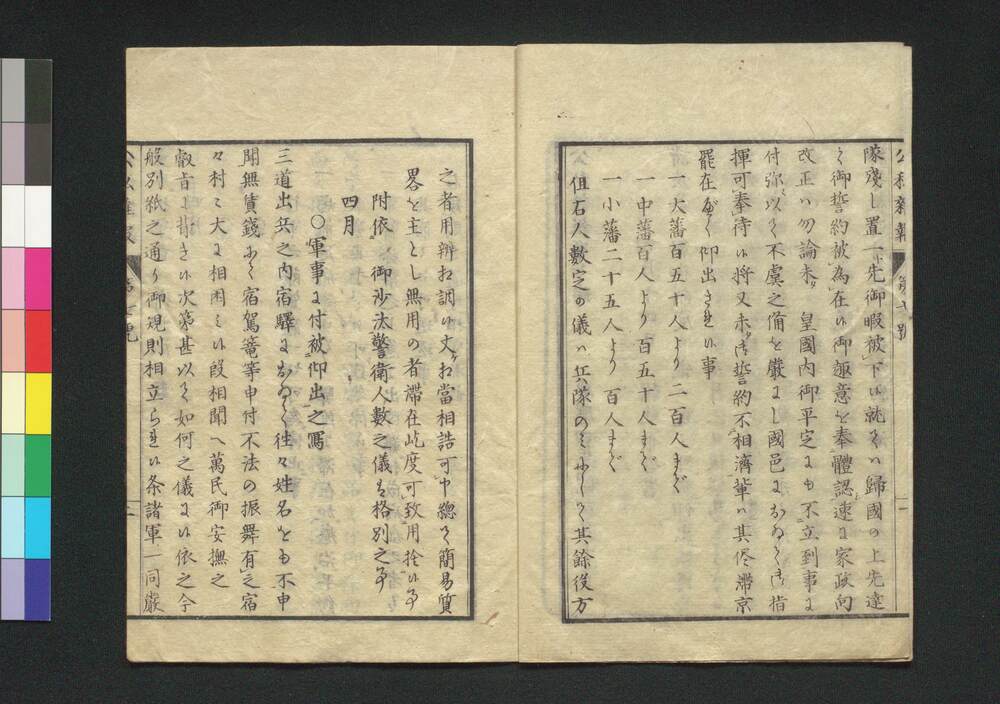 公私雑報 第七號 一
隊残し置一ト先御暇被下候就ては歸國の上先達
て御誓約被為在候御趣意を奉體認速に家政向
改正は勿論未タ 皇國内御平定にも不立到事に
付弥以て不虞之備を嚴にし國邑において御指
揮可奉待候将又未タ御誓約不相濟輩は其侭滞京
罷在べく仰出され候事
一大藩百五十人より二百人まで
一中藩百人より百五十人まで
一小藩二十五人より百人まで
但石人數定の儀は兵隊のみにして其餘役方
之者用辨相調候丈ケ相當相詰可申總て簡易質
畧を主とし無用の者滞在屹度可致用捨候事
附依 御沙汰警衛人數之儀は格別之事
四月
○軍事に付被仰出之寫
三道出兵之内宿驛において徃々姓名をも不申
聞無賃錢にて宿駕篭等申付不法の振舞有之宿
々村々大に相困み候段相聞へ萬民御安撫之
叡旨に背き候次第甚以て如何之儀に候依之今
般別紙之通り御規則相立られ候条諸軍一同嚴
公私雑報 第七號 二